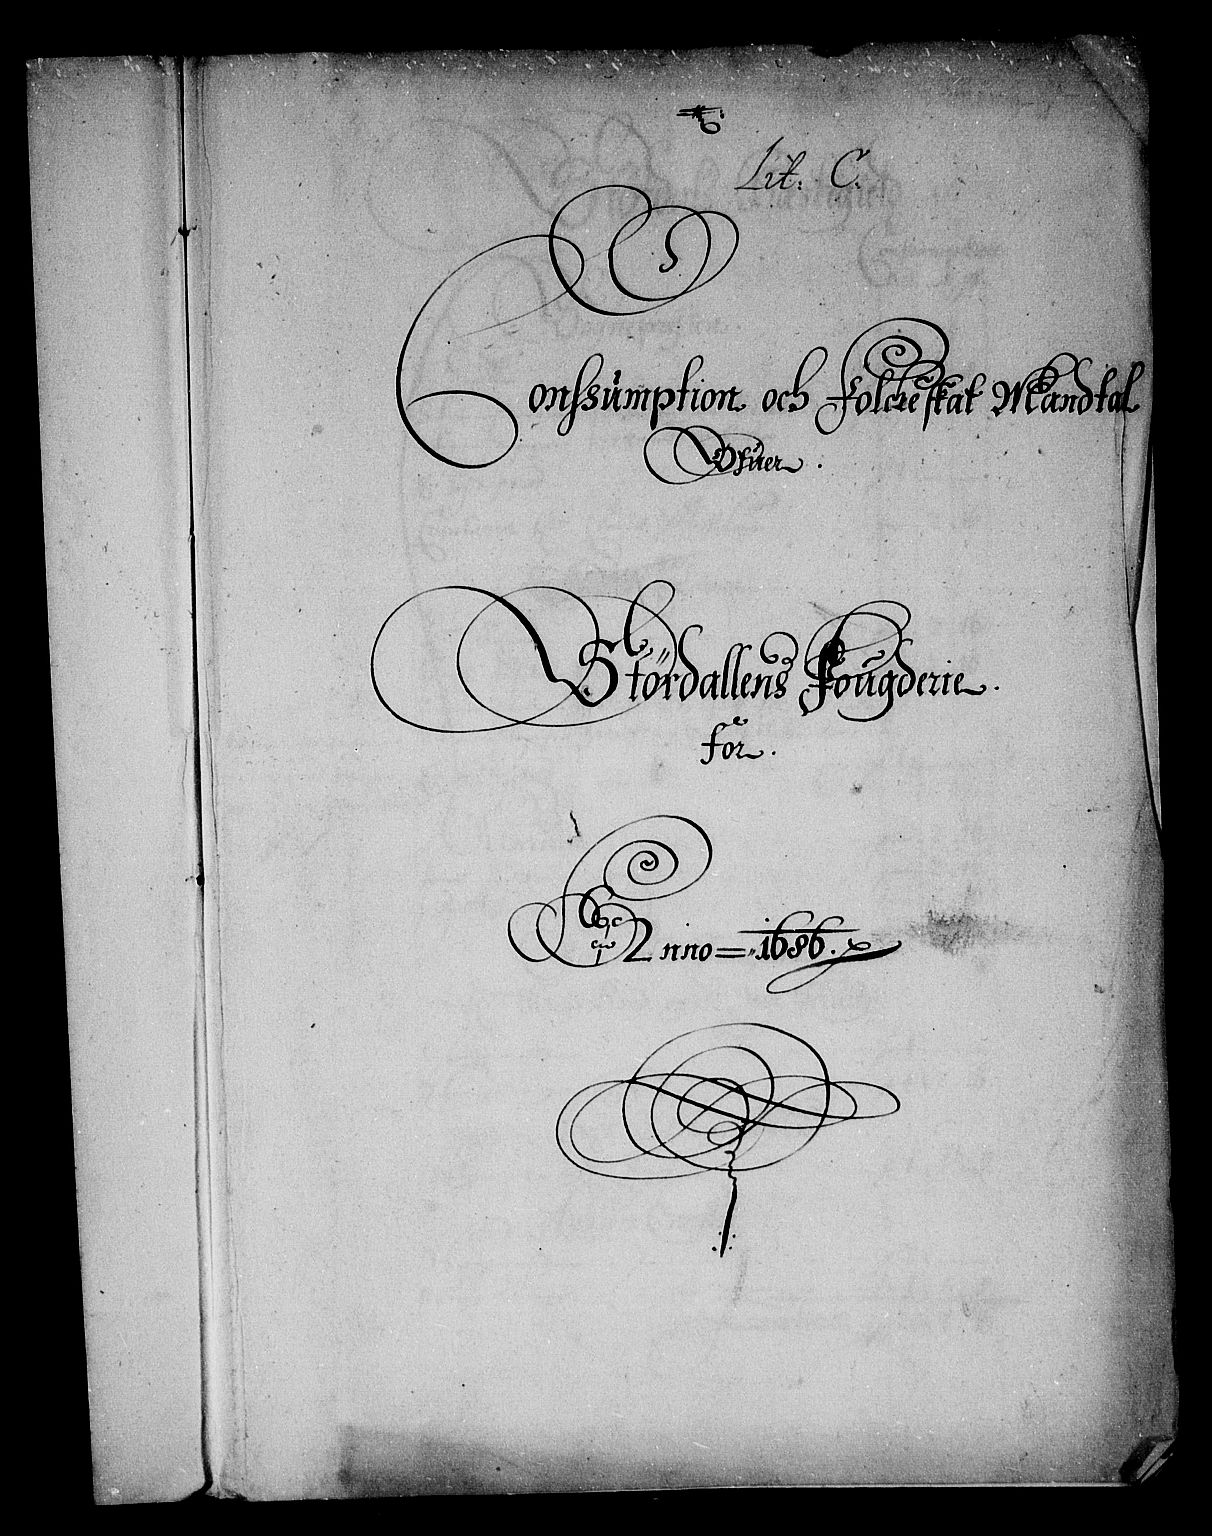 Lit. C.
Conssumption och Folcke skat Mandtal
Ofuer.
Størdallens Fougderie.
for.
Anno = 1686.